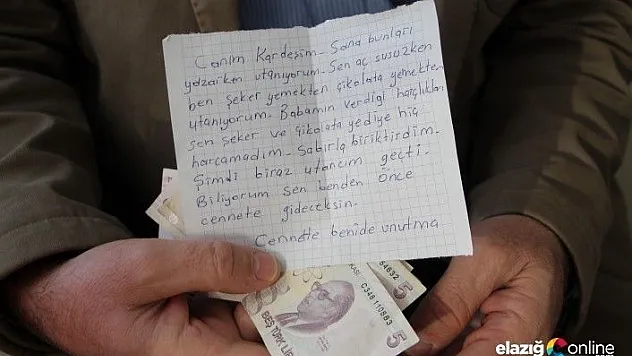 Canım Kardeşim_ Sana bunları
yazarken utanıyorum_ Sen aç susuzken
ben şeker yemekten çikolata yemekten
utanıyorum. Babamın verdiği harçlıkları
sen şeker ve çikolata yediye hiç
harcamadım_ Sabırla biriktirdim.
Şimdi biraz utancım geçti.
Biliyorum sen benden önce
cennete gideceksin.
Cennete benide unutma
C348 110883
5
BEŞ TÜRK LİR
5
elazığ online